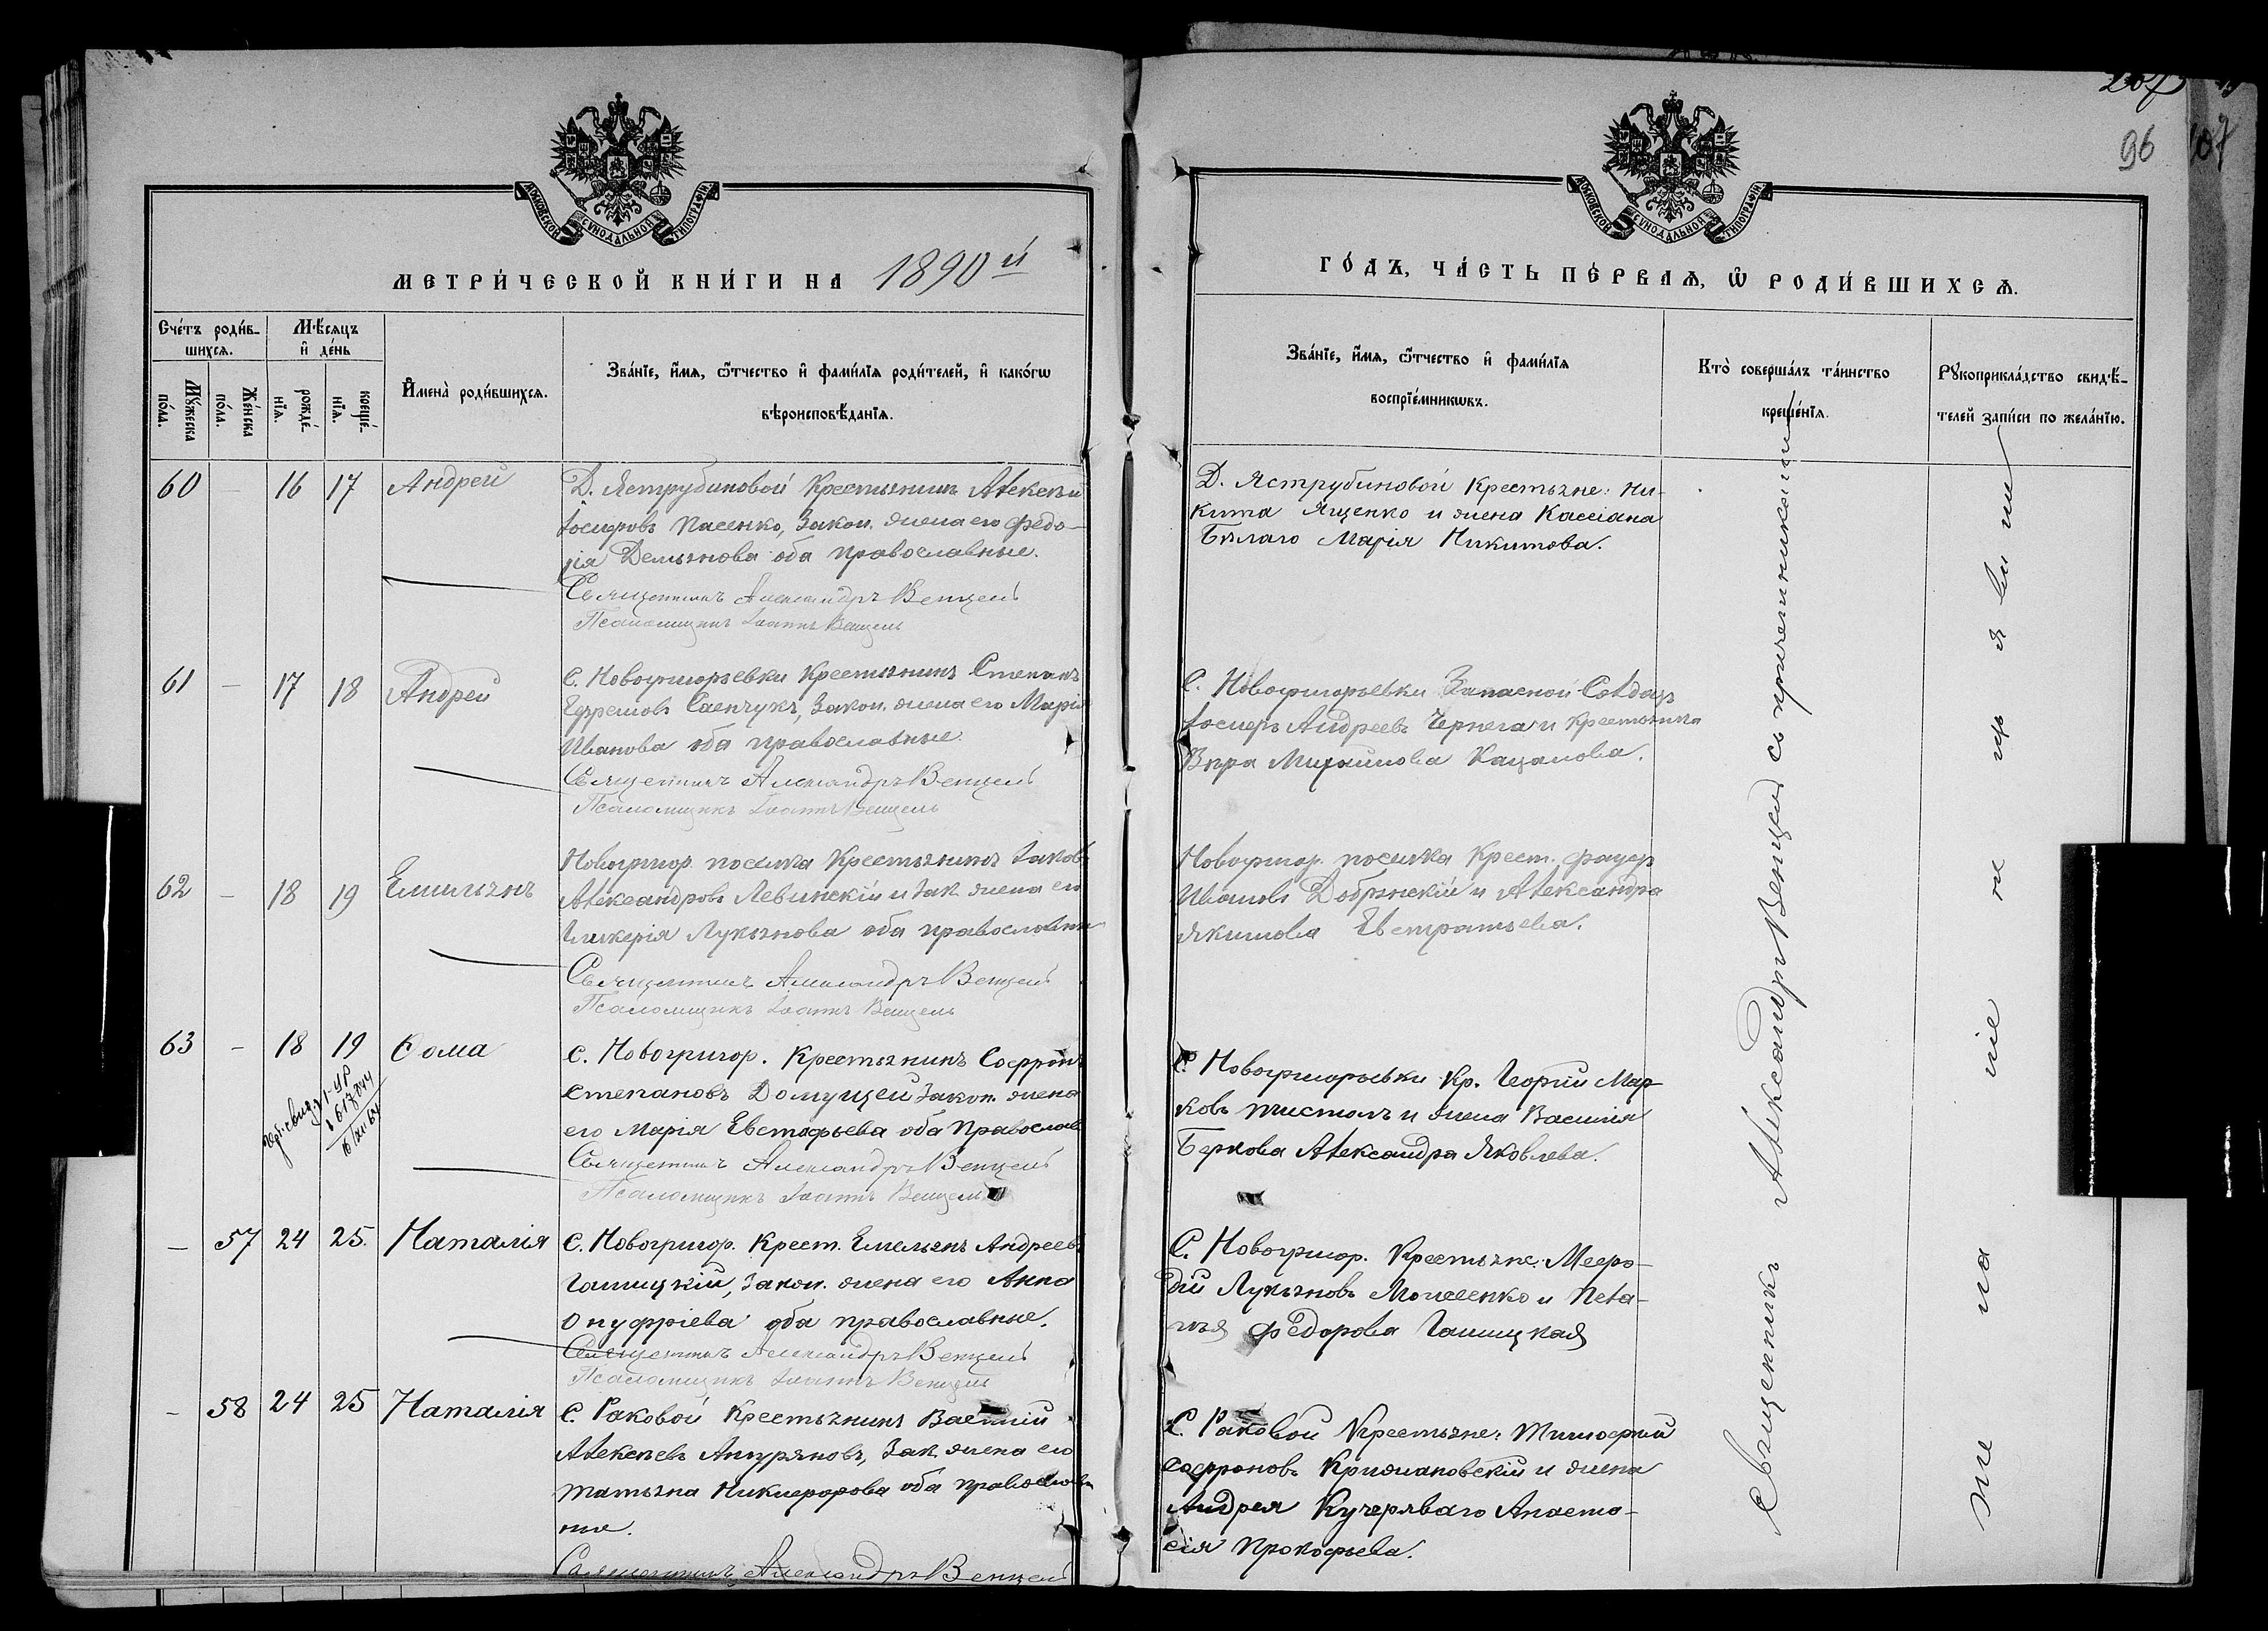 МЕТРИ́ЧЕСКОЙ КНИ́ГИ НА 1890й
Сче́тъ роди́в-
шихсѧ.
Мѣ́сѧцъ
и҆ де́нь
Мꙋ́жеска
по́ла.
Же́нска
по́ла.
рожде́-
нїѧ.
креще́-
нїѧ.
И҆мена̀ роди́вшихсѧ.
Зва́нїе, и҆́мѧ, ѻ҆́тчество и҆ фами́лїѧ роди́телей, и҆ како́гѡ
вѣроисповѣ́данїѧ.
60 — 16 17 Андрей Д. Яструбиновой Крестьянинъ Алексѣй
Іосифовъ Пасенко, Закон. жена его Федо-
сія Демьянова оба православные.
Священникъ Александръ Венцель
Псаломщикъ Іоаннъ Венцель
61 — 17 18 Андрей С. Новогригорьевки Крестьянинъ Степанъ
Ефремовъ Савчукъ, Закон. жена его Марія
Иванова оба православные
Священникъ Александръ Венцель
Псаломщикъ Іоаннъ Венцель
62 — 18 19 Емильянъ Новогригор. поселка Крестьянинъ Іаковъ
Александровъ Левинскій и Зак. жена его
Гликерія Лукьянова оба православны
Священникъ Александръ Венцель
Псаломщикъ Іоаннъ Венцель
63 — 18 19 Ѳома С. Новогригор. Крестьянинъ Софронъ
Степановъ Домущей Закон. жена
его Марія Евстафьева оба Православ
Священникъ Александръ Венцель
Псаломщикъ Іоаннъ Венцель
— 57 24 25. Наталія С. Новогригор. Крест. Емельянъ Андреевъ
Галицкій, Закон. жена его Анна
Онуфріева оба православные.
Священникъ Александръ Венцель
Псаломщикъ Іоаннъ Венцель
— 58 24 25 Наталія С. Раковой Крестьянинъ Василій
Алексѣевъ, Зак. жена его
Татьяна Никифорова оба православ
ные.
Священникъ Александръ Венцель
96
ГО́ДЪ, ЧА́СТЬ ПЕ́РВАѦ, Ѡ҆ РОДИ́ВШИХСѦ.
Зва́нїе, и҆́мѧ, ѻ҆́тчество и҆ фами́лїѧ
воспрїе́мникѡвъ.
Кто̀ соверша́лъ та́инство
креще́нїѧ.
Рꙋкоприкла́дство свидѣ́-
телей за́писи по жела́нїю.
Д. Яструбиновой Крестьяне: Ни-
кита Яценко и жена Кассіана
Бѣлаго Марія Никитова.
С. Новогригорьевки Запасной Солдатъ
Іосифъ Андреевъ Чернега и Крестьянка
Вѣра Михайлова Кацалова.
Новогригор. поселка Крест. Фаддей
Ивановъ Добрянскій и Александра
Якимова Евстратьева.
С. Новогригорьевки Кр. Георгій Мар-
ковъ и жена Василія
Беркова Александра Яковлева.
С. Новогригор. Крестьяне: Меѳо-
дій Лукьяновъ Мошенко и Пела-
гія Федорова Галицкая
С. Раковой Крестьяне: Тимофей
Софроновъ Крижановскій и жена
Андрея Кучеряваго Анаста-
сія Прокофьева.
Священникъ Александръ Венцель съ причетниками
Не желаніе не изъявили